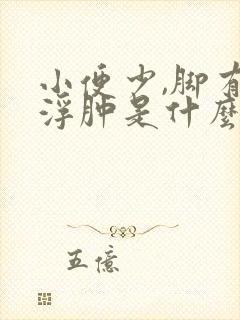 小便少,脚有
浮肿是什麼
五億